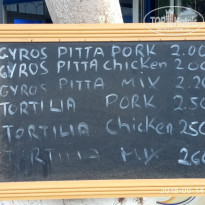 GYROS PITTA PORK 2.00
GYROS PITTA Chicken 2.00
GYROS PITTA MIX 2.20
TORTILIA PORK 2.50
TORTILIA Chicken 250
TORTILIA MIX 260